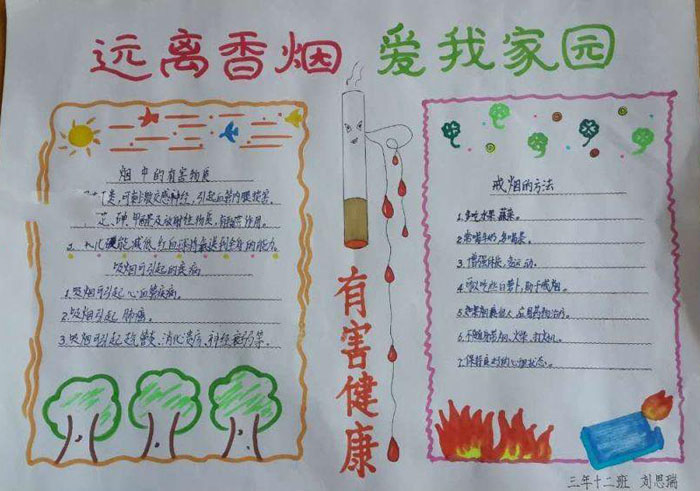 远离香烟 爱我家园
烟中的有害物质
类,可刺激交感神经,引起血管内膜损害。
砷、甲醛及放射性物质,有致癌作用。
碳能减低红血球将氧送到全身的能力
吸烟可引起的疾病
1.吸烟可引起心血管疾病。
2.吸烟可引起肺癌。
3.吸烟可引起气管炎、消化溃疡、神经衰弱等。
有害健康
戒烟的方法
1.多吃水果蔬菜。
2.常喝牛奶,多喝茶。
3.增强体质,多运动。
4.可以吃些白萝卜,助于戒烟。
5.如果烟瘾缠人,应用药物治疗。
6.不随身带烟、火柴、打火机。
7.保持良好的心理状态。
三年十二班 刘思瑞